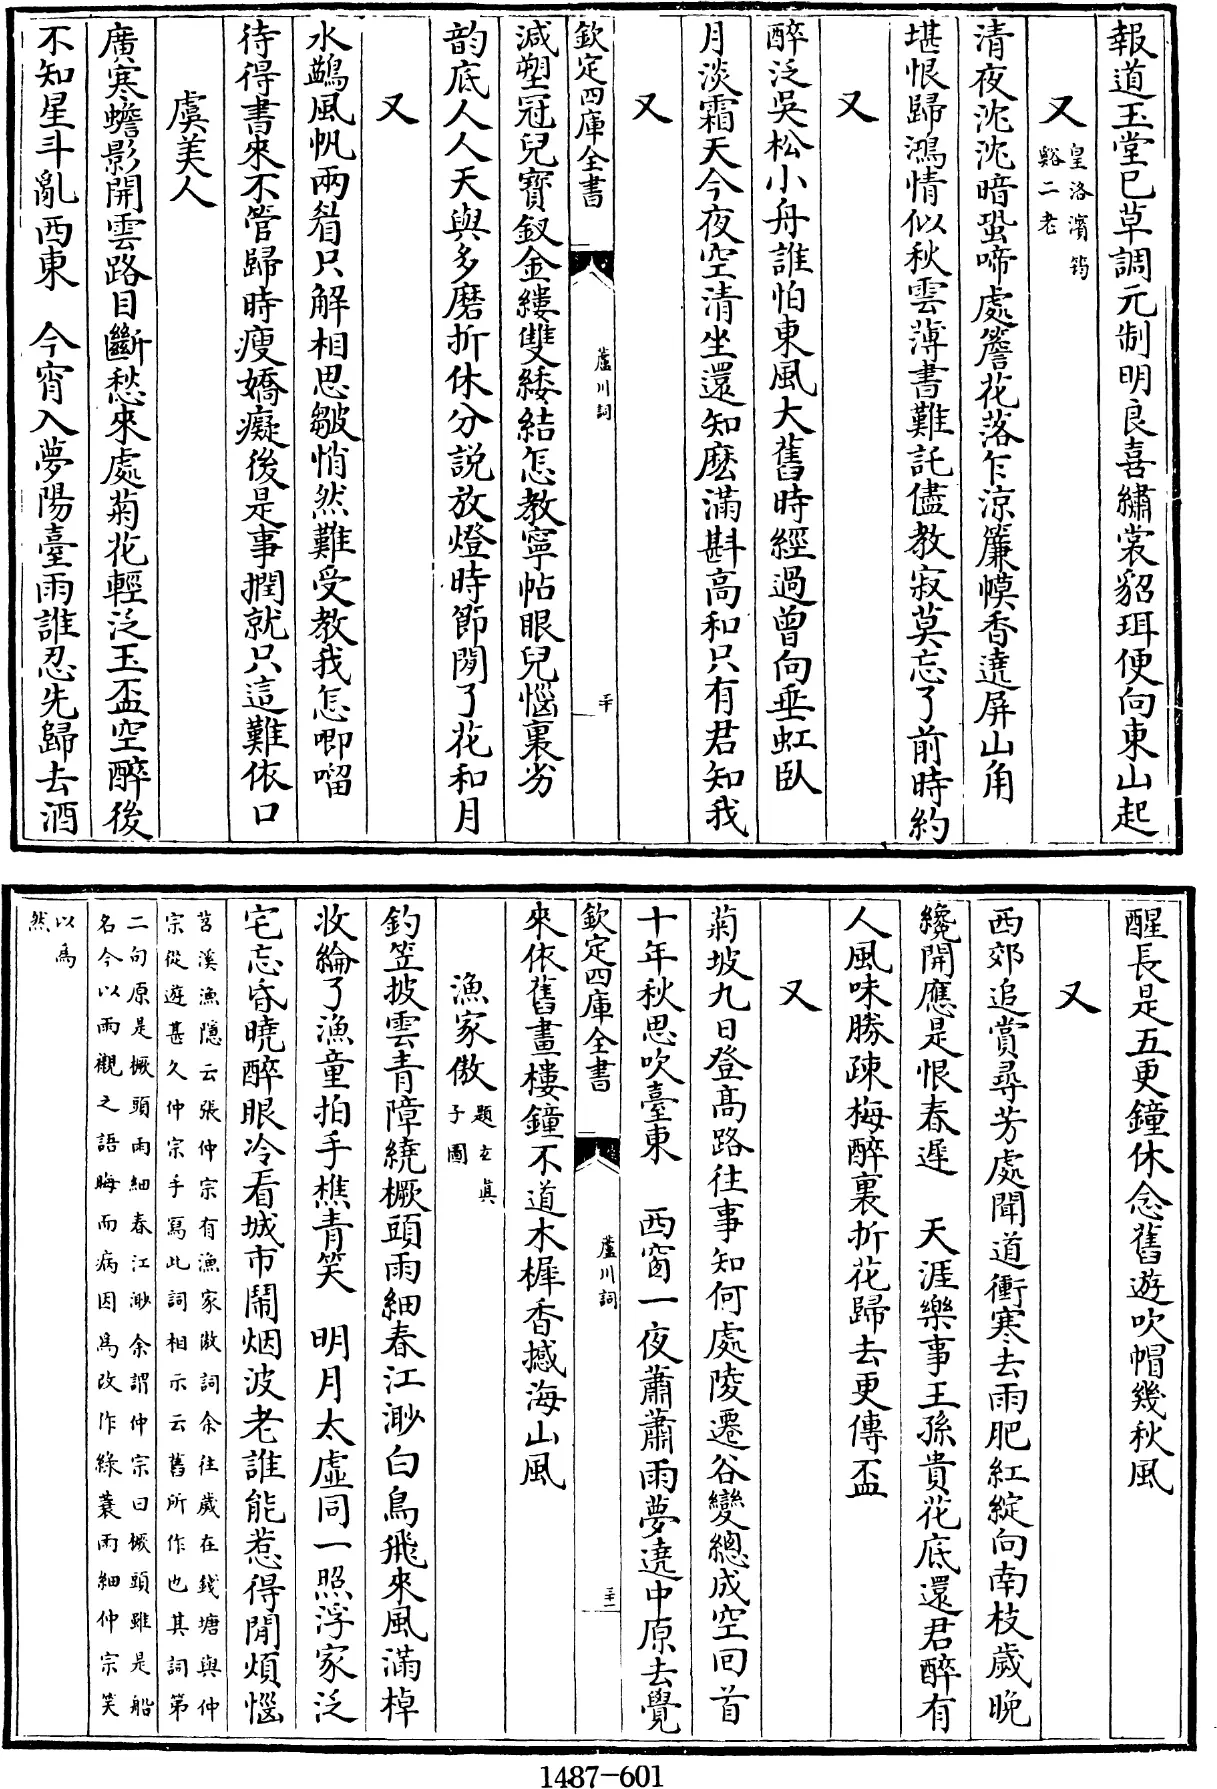 報道玉堂已草調元制明良喜繡裳貂珥便向東山起
又 皇洛濱筠谿二老
清夜沈沈暗蛩啼處簷花落乍涼簾幙香遶屏山角
堪恨歸鴻情似秋雲薄書難託儘教寂莫忘了前時約
又
醉泛吳松小舟誰怕東風大舊時經過曾向垂虹臥
月淡霜天今夜空清坐還知麽滿斟高和只有君知我
又
欽定四庫全書 蘆川詞 二十
減塑冠兒寶釵金縷雙緌結怎教寧帖眼兒惱裏劣
韵底人人天與多磨折休分説放燈時節閒了花和月
又
水鷁風帆兩眉只解相思皺悄然難受教我怎唧嚠
待得書來不管歸時瘦嬌癡後是事撋就只這難依口
虞美人
廣寒蟾影開雲路目斷愁來處菊花輕泛玉盃空醉後
不知星斗亂西東 今宵入夢陽臺雨誰忍先歸去酒
醒長是五更鐘休念舊遊吹帽幾秋風
又
西郊追賞尋芳處聞道衝寒去雨肥紅綻向南枝歲晚
纔開應是恨春遲 天涯樂事王孫貴花底還君醉有
人風味勝疎梅醉裏折花歸去更傳盃
又
菊坡九日登髙路往事知何處陵遷谷變總成空回首
十年秋思吹臺東 西窗一夜蕭蕭雨夢遶中原去覺
欽定四庫全書 蘆川詞 二十一
來依舊畫樓鐘不道木樨香撼海山風
漁家傲 題玄真子圖
釣笠披雲青障繞橛頭雨細春江渺白鳥飛來風滿棹
收綸了漁童拍手樵青笑 明月太虛同一照浮家泛
宅忘昏曉醉眼冷看城市鬧烟波老誰能惹得閒煩惱
苕溪漁隱云張仲宗有漁家傲詞余往歲在錢塘與仲
宗從遊甚久仲宗手寫此詞相示云舊所作也其詞第
二句原是橛頭雨細春江渺余謂仲宗曰橛頭雖是船
名今以雨觀之語晦而病因為改作綠蓑雨細仲宗笑
以為
然
1487-601